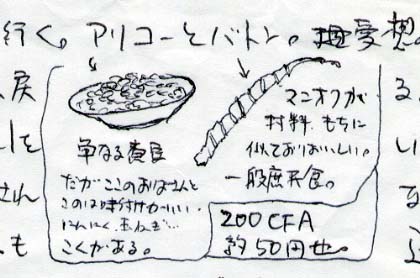 行く。アリコーとバトン。理愛想
戻
さん
も
単なる煮豆
だがここのおばさんと
このは味付けがいい
にんにく、玉ねぎ…
こくがある。
マニオクが
材料、もちに
似ておりおいしい。
一般庶民食。
200 CFA
約50円也。
る
い